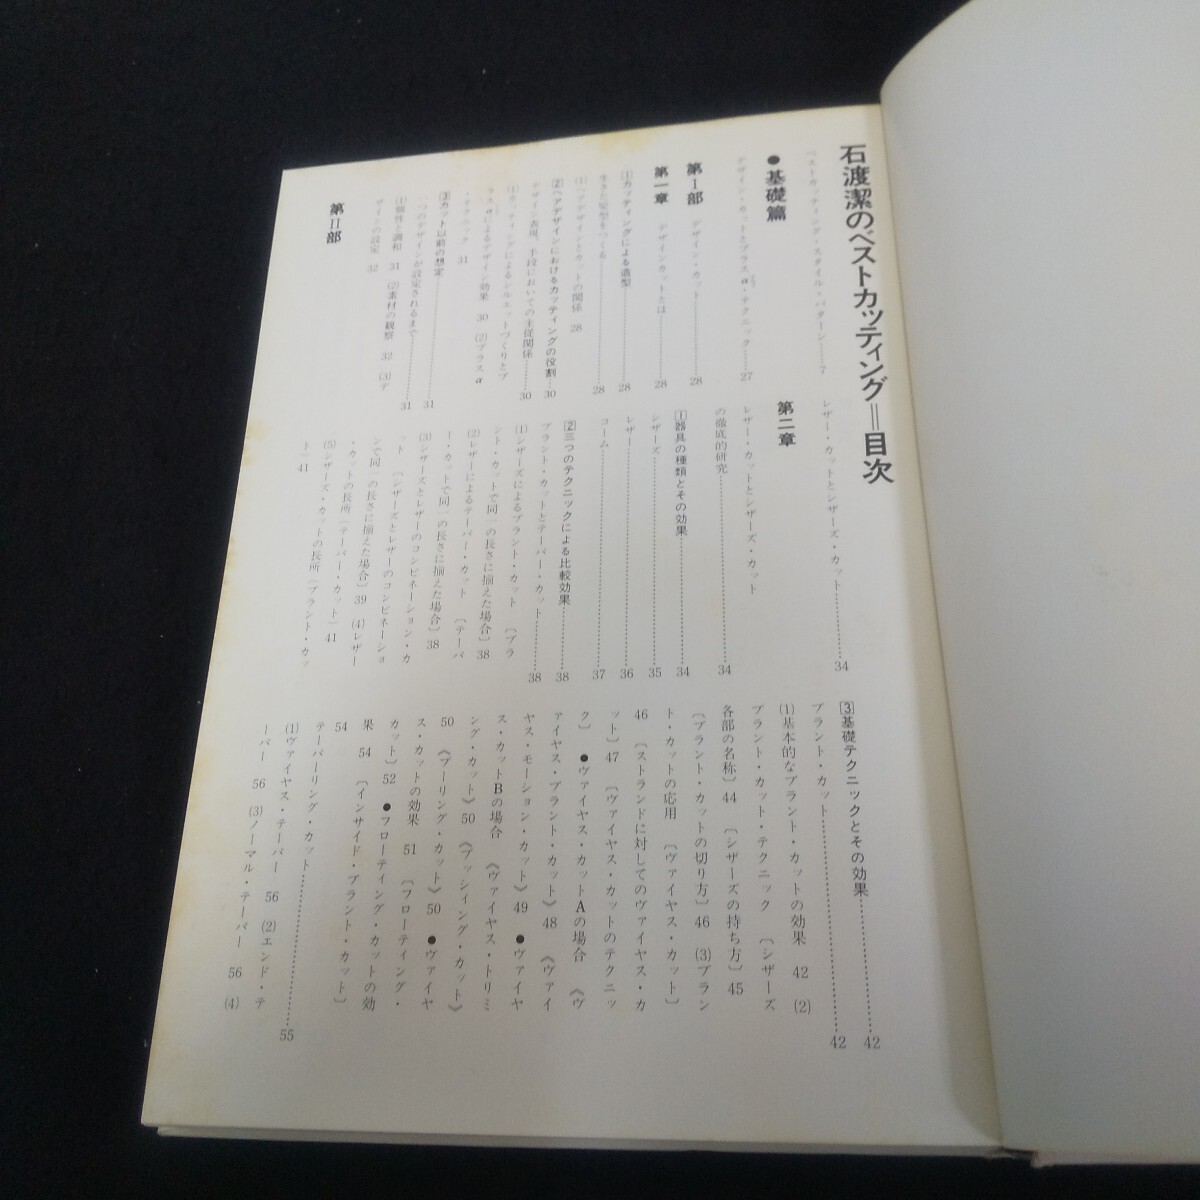 石渡潔のベストカッティング=目次
ベストカッティング・スタイル・パターン……7
●基礎篇
デザイン・カットとプラスα・テクニック……27
第Ⅰ部 デザイン・カット……28
第一章 デザインカットとは……28
[1]カッティングによる造型……28
生きた髪型をつくる……28
(1)ヘアデザインとカットの関係 28
[2]ヘアデザインにおけるカッティングの役割…30
デザイン表現、手段においての主従関係……30
(1)カッティングによるシルエットづくりとプ
ラスαによるデザイン効果 30 (2)プラスα
・テクニック 31
[3]カット以前の想定……31
一つのデザインが設定されるまで……31
(1)個性と調和 31 (2)素材の観察 32 (3)デ
ザインの設定 32
第Ⅱ部
レザー・カットとシザーズ・カット……34
第二章
レザー・カットとシザーズ・カット
の徹底的研究……34
[1]器具の種類とその効果……34
シザーズ……35
レザー……36
コーム……37
[2]三つのテクニックによる比較効果……38
ブラント・カットとテーパー・カット……38
(1)シザーズによるブラント・カット 〔ブラ
ント・カットで同一の長さに揃えた場合〕38
(2)レザーによるテーパー・カット 〔テーパ
ー・カットで同一の長さに揃えた場合〕38
(3)シザーズとレザーのコンビネーション・カ
ット 〔シザーズとレザーのコンビネーショ
ンで同一の長さに揃えた場合〕39 (4)レザー
・カットの長所〔テーパー・カット〕41
(5)シザーズ・カットの長所〔ブラント・カッ
ト〕41
[3]基礎テクニックとその効果……42
ブラント・カット……42
(1)基本的なブラント・カットの効果 42 (2)
ブラント・カット・テクニック 〔シザーズ
各部の名称〕44 〔シザーズの持ち方〕45
〔ブラント・カットの切り方〕46 (3)ブラン
ト・カットの応用 〔ヴァイヤス・カット〕
46 〔ストランドに対してのヴァイヤス・カ
ット〕47 〔ヴァイヤス・カットのテクニッ
ク〕 ●ヴァイヤス・カットAの場合 《ヴ
ァイヤス・ブラント・カット》48 《ヴァイ
ヤス・モーション・カット》49 ●ヴァイヤ
ス・カットBの場合 《ヴァイヤス・トリミ
ング・カット》50 《プッシィング・カット》
50 《プーリング・カット》50 ●ヴァイヤ
ス・カットの効果 51 〔フローティング・
カット〕52 ●フローティング・カットの効
果 54 〔インサイド・ブラント・カット〕
54
テーパーリング・カット……55
(1)ヴァイヤス・テーパー 56 (2)エンド・テ
ーパー 56 (3)ノーマル・テーパー 56 (4)